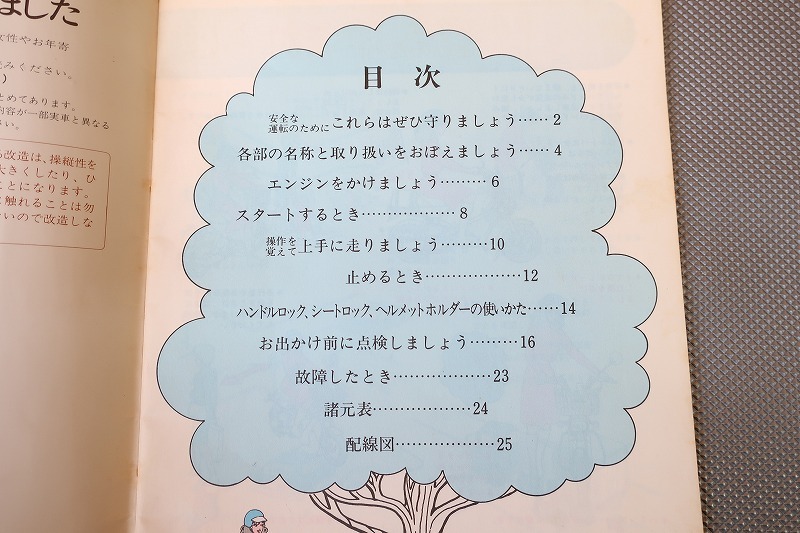 ました
女性やお年寄
読みください。
)
とめてあります。
内容が一部実車と異なる
さい。
改造は、操縦性を
大きくしたり、ひ
ことになります。
触れることは勿
いので改造しな
目次
安全な運転のために これらはぜひ守りましょう……2
各部の名称と取り扱いをおぼえましょう……4
エンジンをかけましょう………6
スタートするとき………………8
操作を覚えて 上手に走りましょう………10
止めるとき………………12
ハンドルロック、シートロック、ヘルメットホルダーの使いかた……14
お出かけ前に点検しましょう………16
故障したとき………………23
諸元表………………24
配線図………………25